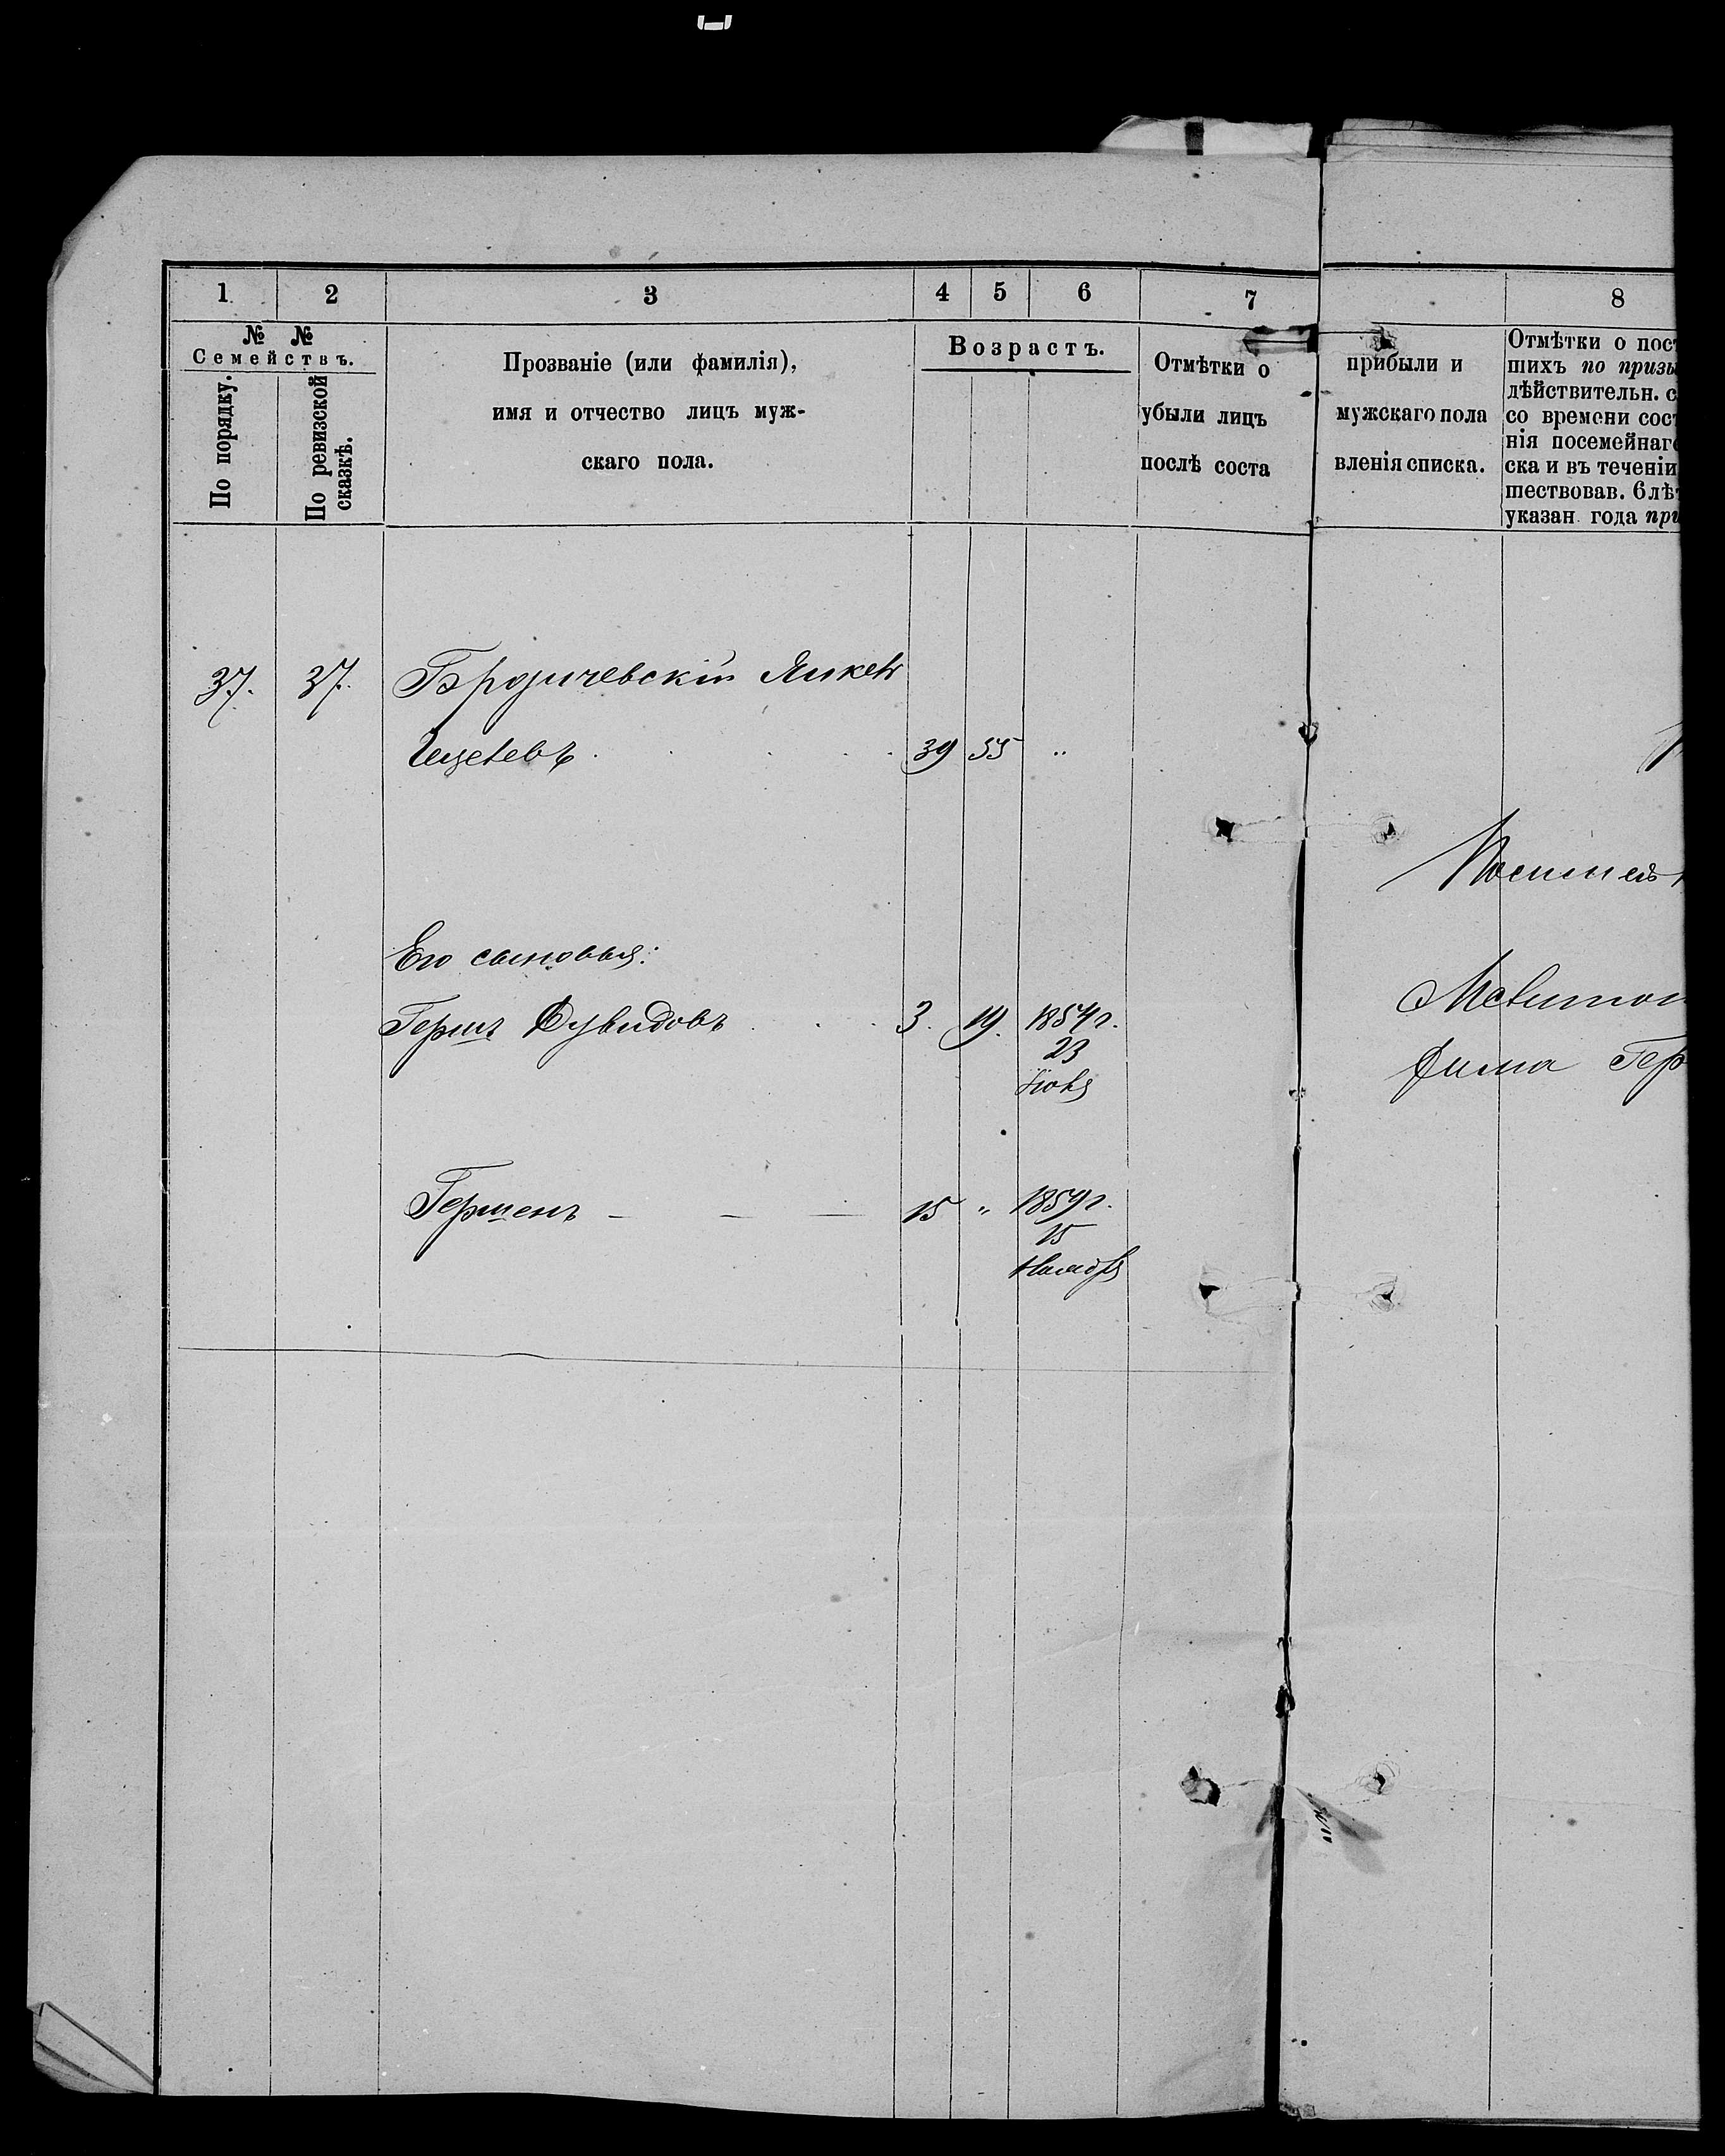 1 2 3 4 5 6 7 8
№ №
Семействъ.
По порядку.
По ревизской сказкѣ.
Прозваніе (или фамилія),
имя и отчество лицъ муж-
скаго пола.
Возрастъ.
Отмѣтки о
убыли лицъ
послѣ соста
прибыли и
мужскаго пола
вленія списка.
Отмѣтки о пос
шихъ по призы
дѣйствительн. с
со времени сост
нія посемейнаго
ска и въ теченіи
шествовав. 6 лѣт
указан. года при
37. 37. Янкель
39 55 "
Его сыновья:
Гершъ Дувидовъ 3. 19. 1854 г.
23
Гершенъ — — — 15 " 1859 г.
15
Ноября
Гер